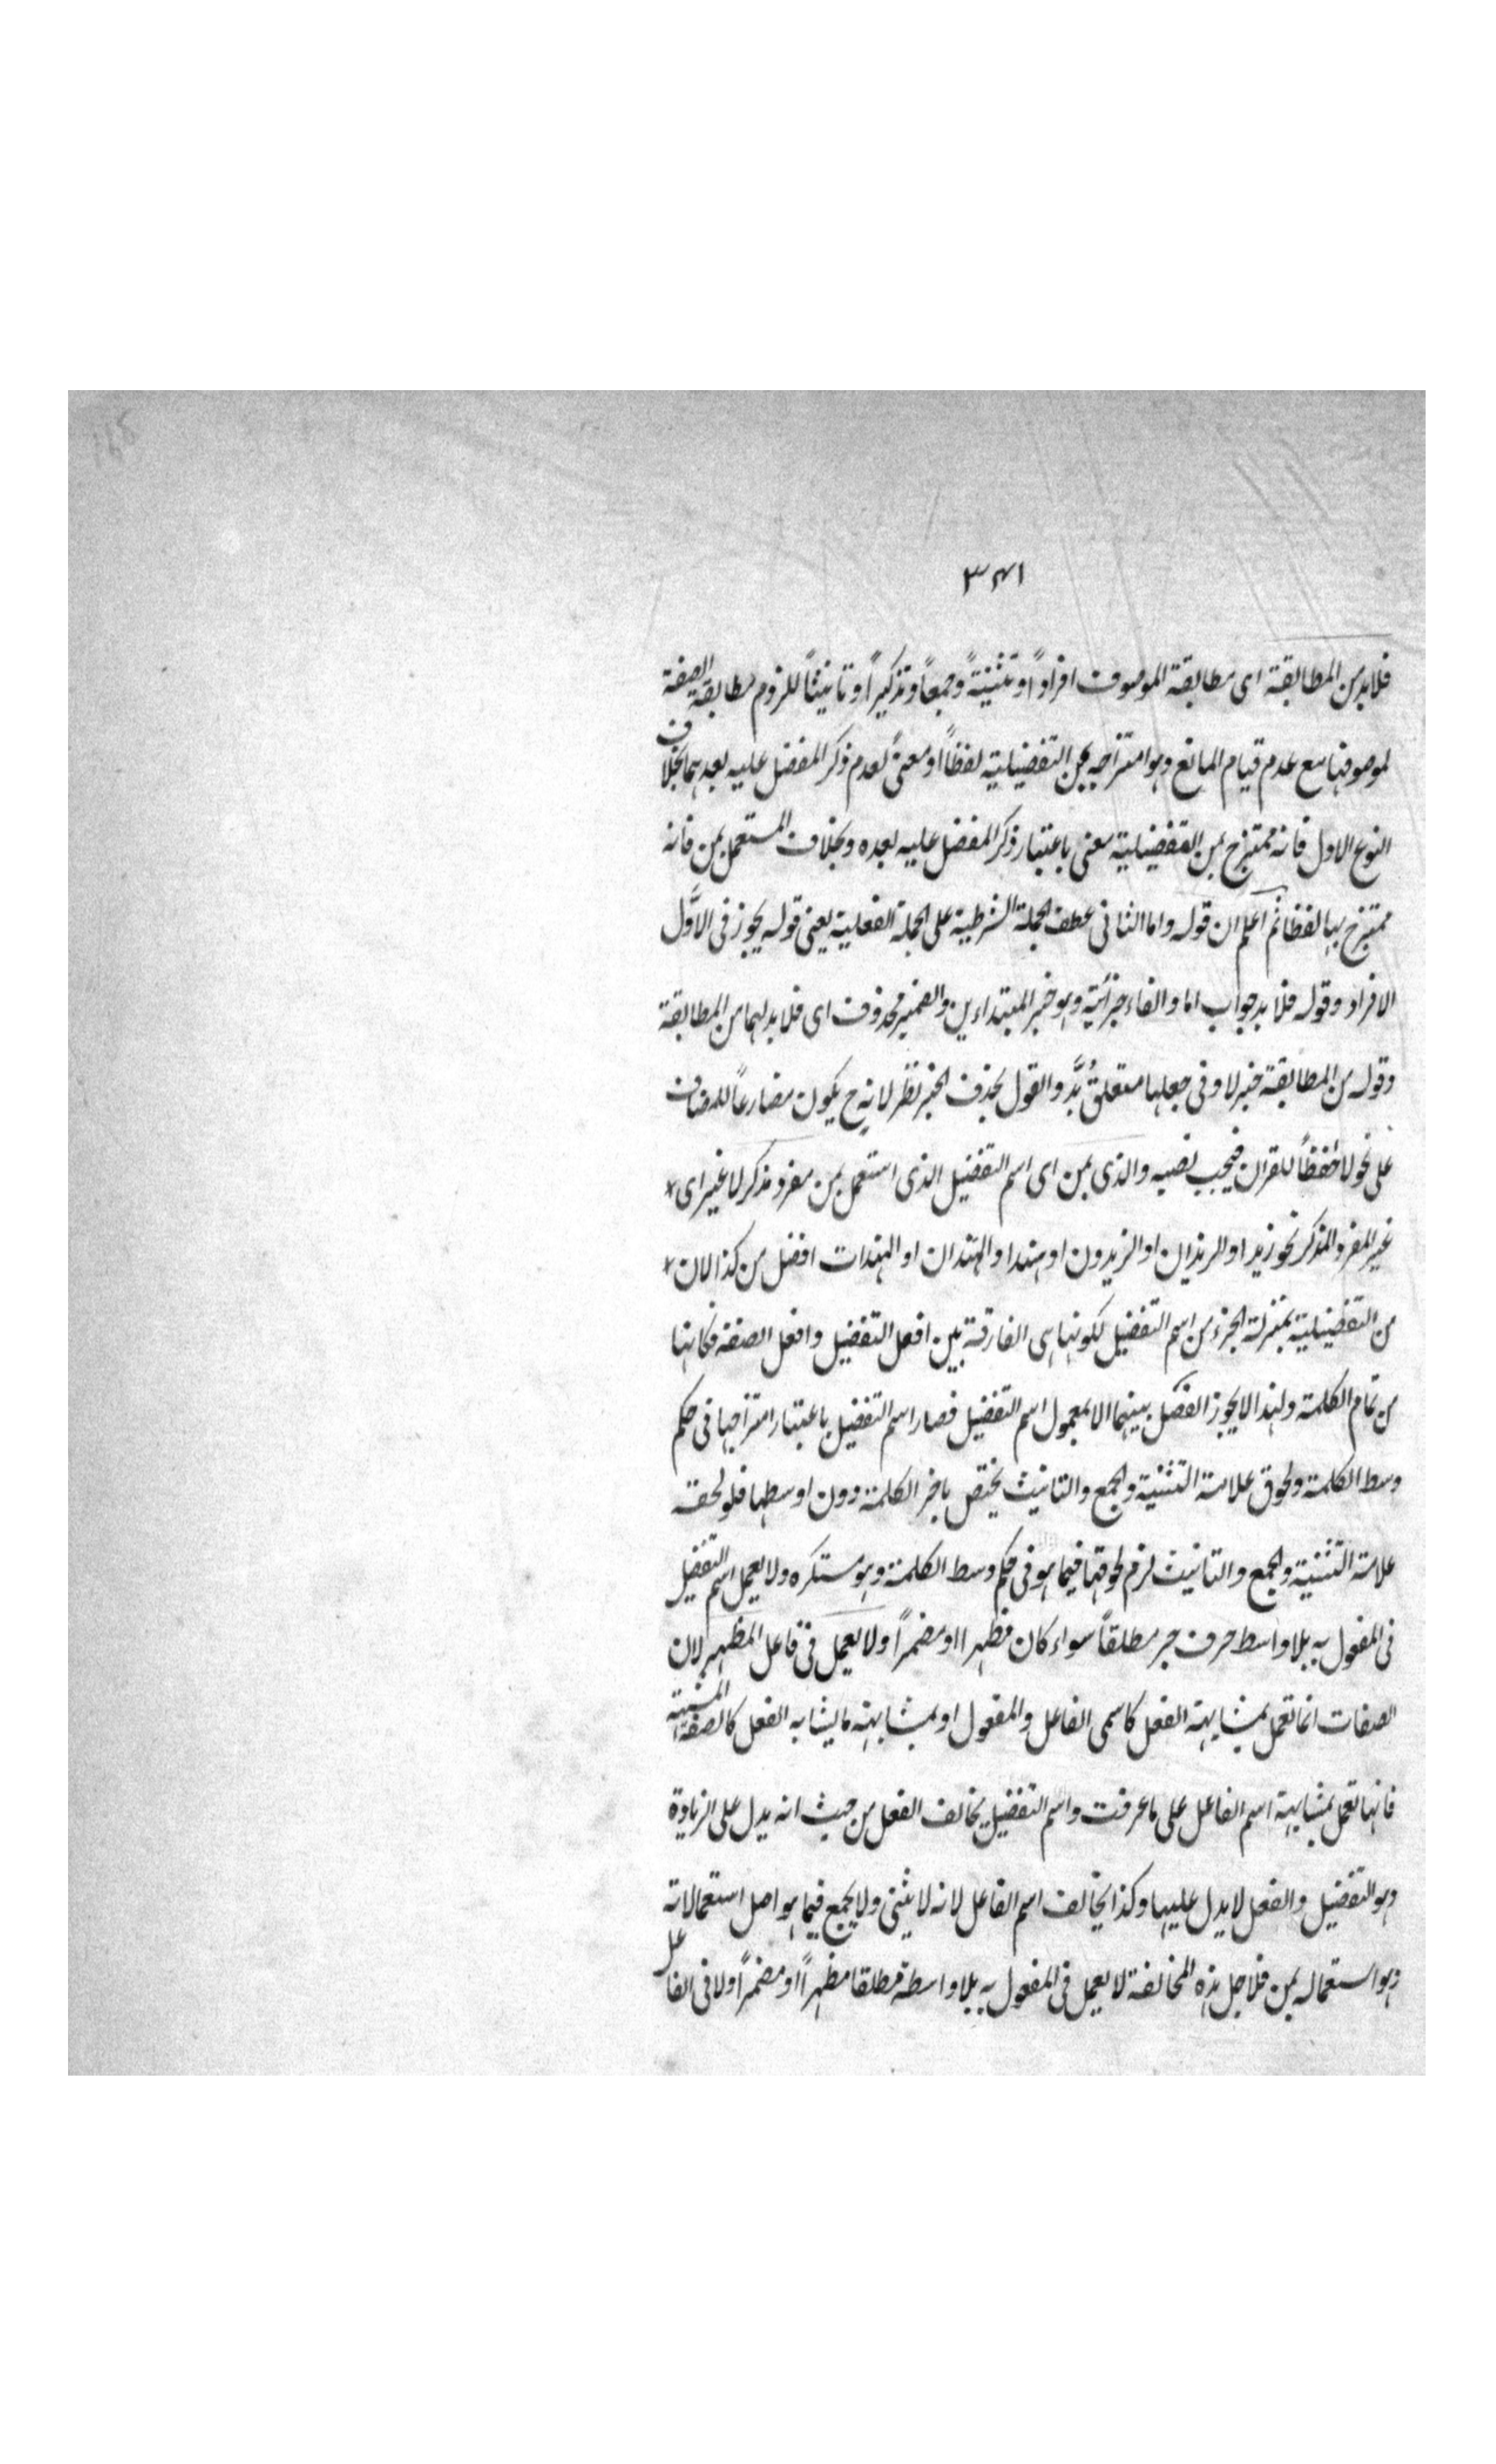 ٣٤١
فلابد من المطابقة اى مطابقة الموصوف افراداً او تثنيةً وجمعاً وتذكيراً وتانيثاً للزوم مطابقة الصفة
لموصوفها مع عدم قيام المانع وهو امتزاجه بمن التفضيلية لفظاً او معنىً لعدم ذكر المفضل عليه بعدهما بخلاف
النوع الاول فانه ممتزج بمن التفضيلية معنى باعتبار ذكر المفضل عليه بعده وبخلاف المستعمل بمن فانه
ممتزج بها لفظا ثم اعلم ان قوله واما الثانى عطف الجملة الشرطية على الجملة الفعلية يعنى قوله يجوز فى الاوَّل
الافراد وقوله فلا بد جواب اما والفاء جزائية وهو خبر المبتداء ين والضمير محذوف اى فلا بد لهما من المطابقة
وقوله من المطابقة خبر لا وفى جعلها متعلقُ بُدَّ والقول بحذف الخبر نظر لانه ح يكون مضارعاً للمضاف
على نحو لا حافظاً للقران فيجب نصبه والذى بمن اى اسم التفضيل الذى استعمل بمن مفرد مذكر لا غير اى *
غير المفرد المذكر نحو زيد او الزيدان او الزيدون او هند او الهندان او الهندات افضل من كذا لان *
من التفضيلية بمنزلة الجزء من اسم التفضيل لكونها هى الفارقة بين افعل التفضيل وافعل الصفة فكانها
من تمام الكلمة ولهذا لا يجوز الفصل بينهما الا بمعمول اسم التفضيل فصار اسم التفضيل باعتبار امتزاجها فى حكم
وسط الكلمة ولحوق علامة التثنية والجمع والتانيث يختص باخر الكلمة دون اوسطها فلو لحقه
علامة التثنية والجمع والتانيث لزم لحوقها فيما هو فى حكم وسط الكلمة وهو مستكره ولا يعمل اسم التفضيل
فى المفعول به بلا واسط حرف جر مطلقاً سواء كان مظهرا او مضمراً ولا يعمل فى فاعل المظهر لان
الصفات انما تعمل بمشابهة الفعل كاسمى الفاعل والمفعول او بمشابهة ما يشابه الفعل كالصفة المشبهة
فانها تعمل بمشابهة اسم الفاعل على ما عرفت واسم التفضيل يخالف الفعل من حيث انه يدل على الزيادة
وهو التفضيل والفعل لا يدل عليها وكذا يخالف اسم الفاعل لانه لا يثنى ولا يجمع فيما هو اصل استعمالاته
وهو استعماله بمن فلاجل هذه المخالفة لا يعمل فى المفعول به بلا واسطة مطلقا مظهراً او مضمراً ولا فى الفاعل